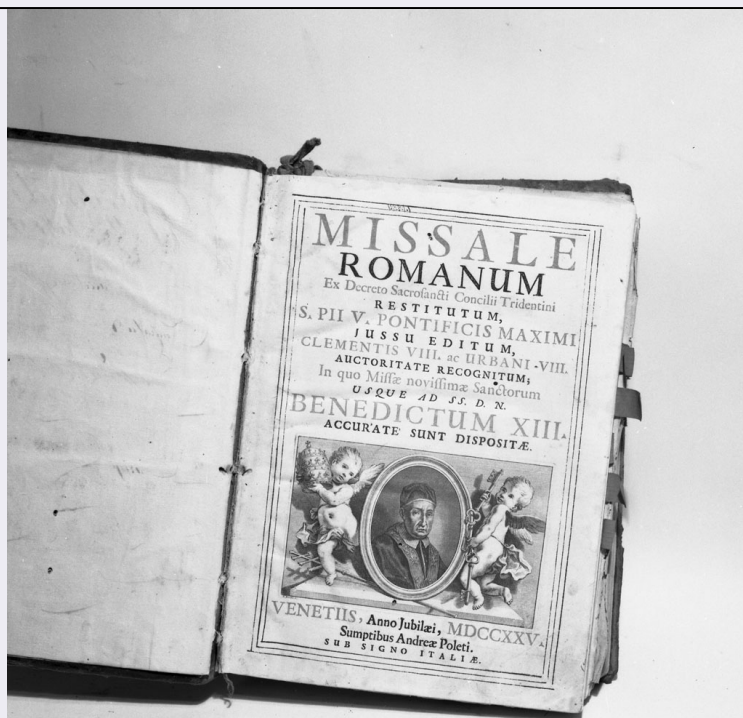 MISSALE
ROMANUM
Ex Decreto Sacrosancti Concilii Tridentini
RESTITUTUM,
S. PII V. PONTIFICIS MAXIMI
JUSSU EDITUM,
CLEMENTIS VIII. ac URBANI VIII.
AUCTORITATE RECOGNITUM;
In quo Missæ novissimæ Sanctorum
USQUE AD SS. D. N.
BENEDICTUM XIII.
ACCURATE SUNT DISPOSITÆ.
VENETIIS, Anno Jubilæi, MDCCXXV.
Sumptibus Andreæ Poleti.
SUB SIGNO ITALIÆ.